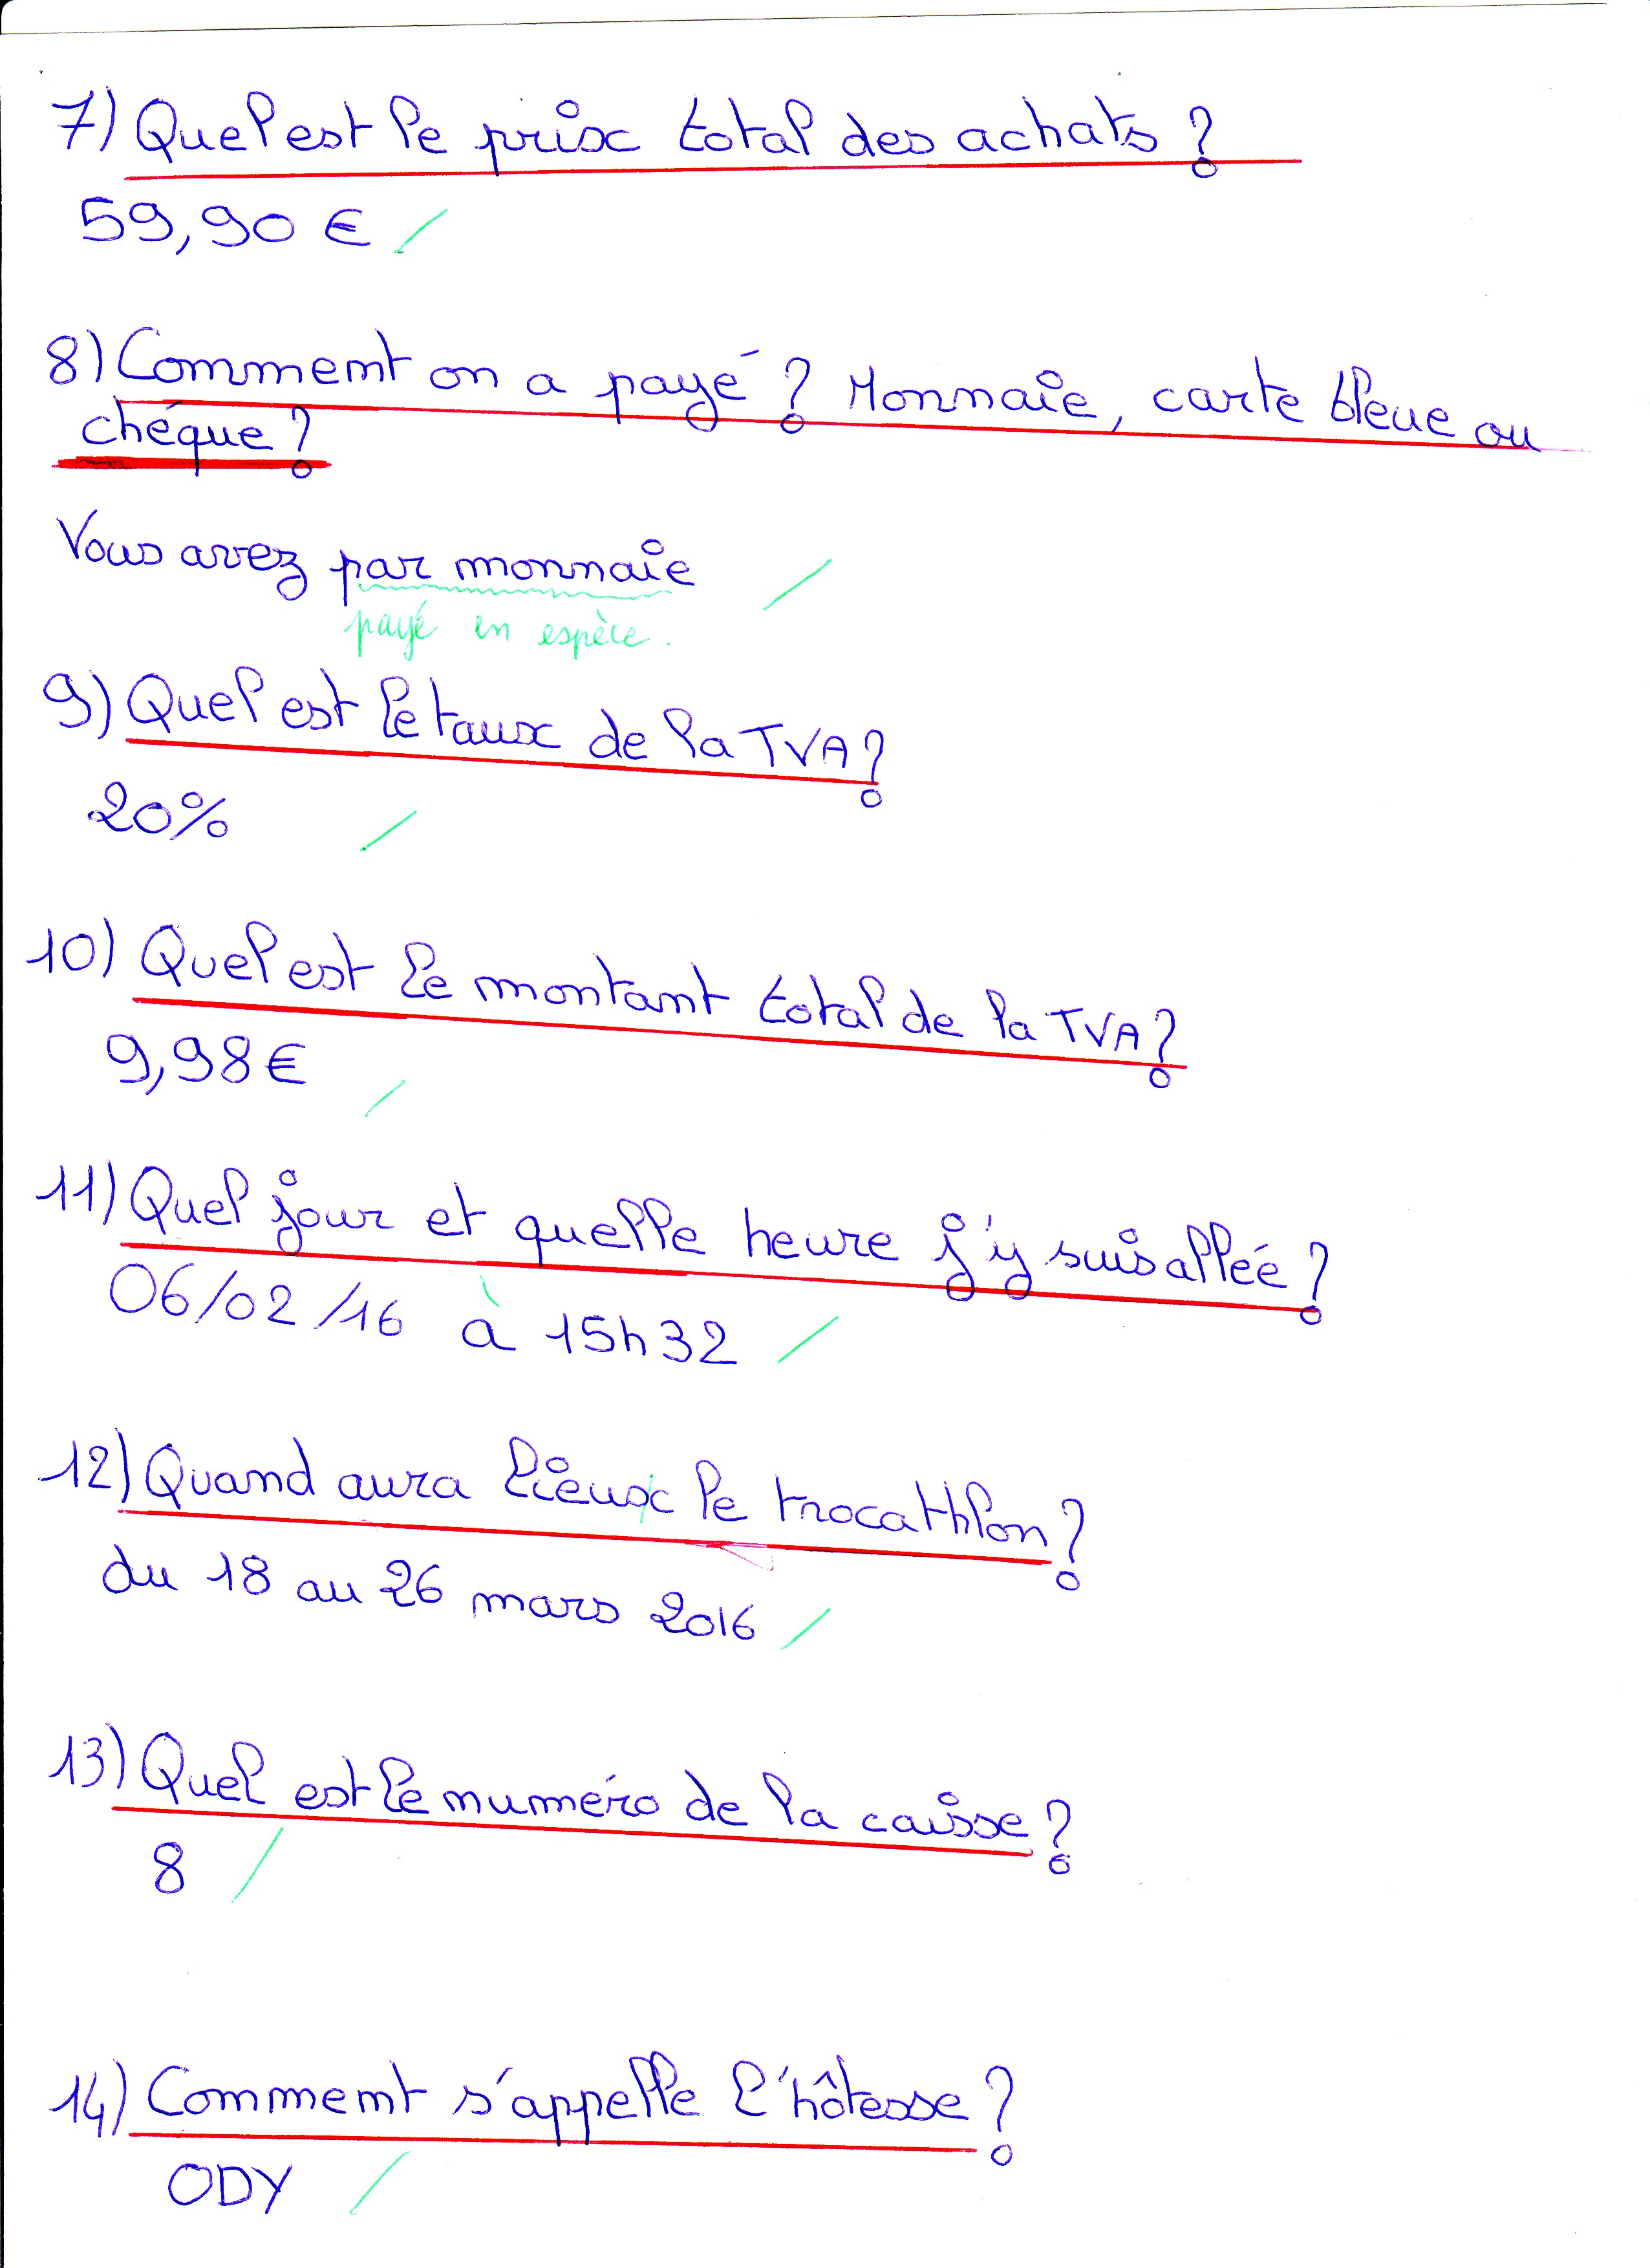 7) Quel est le prix total des achats ?
59,90 €
8) Comment on a payé ? Monnaie, carte bleue ou
chéque ?
Vous avez par monnaie
payé en espèce.
9) Quel est le taux de la TVA ?
20%
10) Quel est le montant total de la TVA ?
9,98 €
11) Quel jour et quelle heure j'y suis allée ?
06/02/16 à 15h32
12) Quand aura lieux le trocathlon ?
du 18 au 26 mars 2016
13) Quel est le numéro de la caisse ?
8
14) Comment s'appelle l'hôtesse ?
ODY